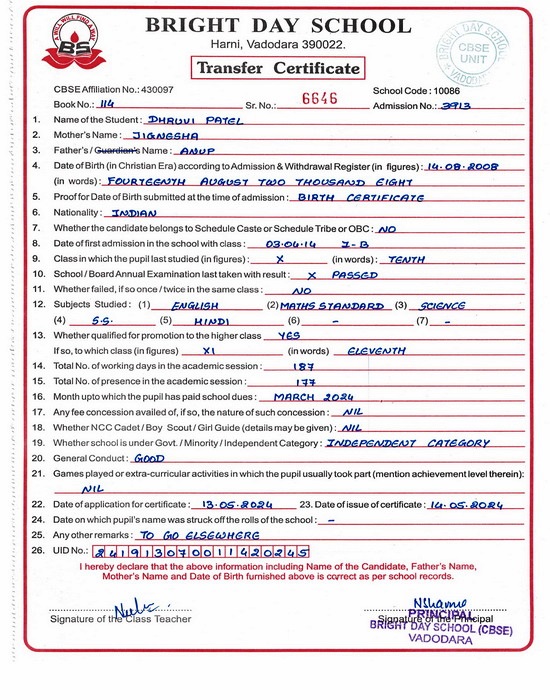 A WILL WILL FIND A WAY
BS
BRIGHT DAY SCHOOL
Harni, Vadodara 390022.
Transfer Certificate
BRIGHT DAY SCHOOL
CBSE
UNIT
VADODARA
CBSE Affiliation No.: 430097 School Code : 10086
Book No.: 114 Sr. No.: 6646 Admission No.: 3913
1. Name of the Student : DHRUVI PATEL
2. Mother's Name : JIGNESHA
3. Father's / Guardian's Name : ANUP
4. Date of Birth (in Christian Era) according to Admission & Withdrawal Register (in figures) : 14.08.2008
(in words) : FOURTEENTH AUGUST TWO THOUSAND EIGHT
5. Proof for Date of Birth submitted at the time of admission : BIRTH CERTIFICATE
6. Nationality : INDIAN
7. Whether the candidate belongs to Schedule Caste or Schedule Tribe or OBC : NO
8. Date of first admission in the school with class : 03.04.14 I-B
9. Class in which the pupil last studied (in figures) : X (in words) : TENTH
10. School / Board Annual Examination last taken with result : X PASSED
11. Whether failed, if so once / twice in the same class : NO
12. Subjects Studied : (1) ENGLISH (2) MATHS STANDARD (3) SCIENCE
(4) S.S. (5) HINDI (6) - (7) -
13. Whether qualified for promotion to the higher class YES
If so, to which class (in figures) XI (in words) ELEVENTH
14. Total No. of working days in the academic session : 187
15. Total No. of presence in the academic session : 177
16. Month upto which the pupil has paid school dues : MARCH 2024
17. Any fee concession availed of, if so, the nature of such concession : NIL
18. Whether NCC Cadet / Boy Scout / Girl Guide (details may be given) : NIL
19. Whether school is under Govt. / Minority / Independent Category : INDEPENDENT CATEGORY
20. General Conduct : GOOD
21. Games played or extra-curricular activities in which the pupil usually took part (mention achievement level therein):
NIL
22. Date of application for certificate : 13.05.2024 23. Date of issue of certificate : 14.05.2024
24. Date on which pupil's name was struck off the rolls of the school : -
25. Any other remarks : TO GO ELSEWHERE
26. UID No.: 241913070011420245
I hereby declare that the above information including Name of the Candidate, Father's Name,
Mother's Name and Date of Birth furnished above is correct as per school records.
Signature of the Class Teacher Signature of the Principal
PRINCIPAL
BRIGHT DAY SCHOOL (CBSE)
VADODARA